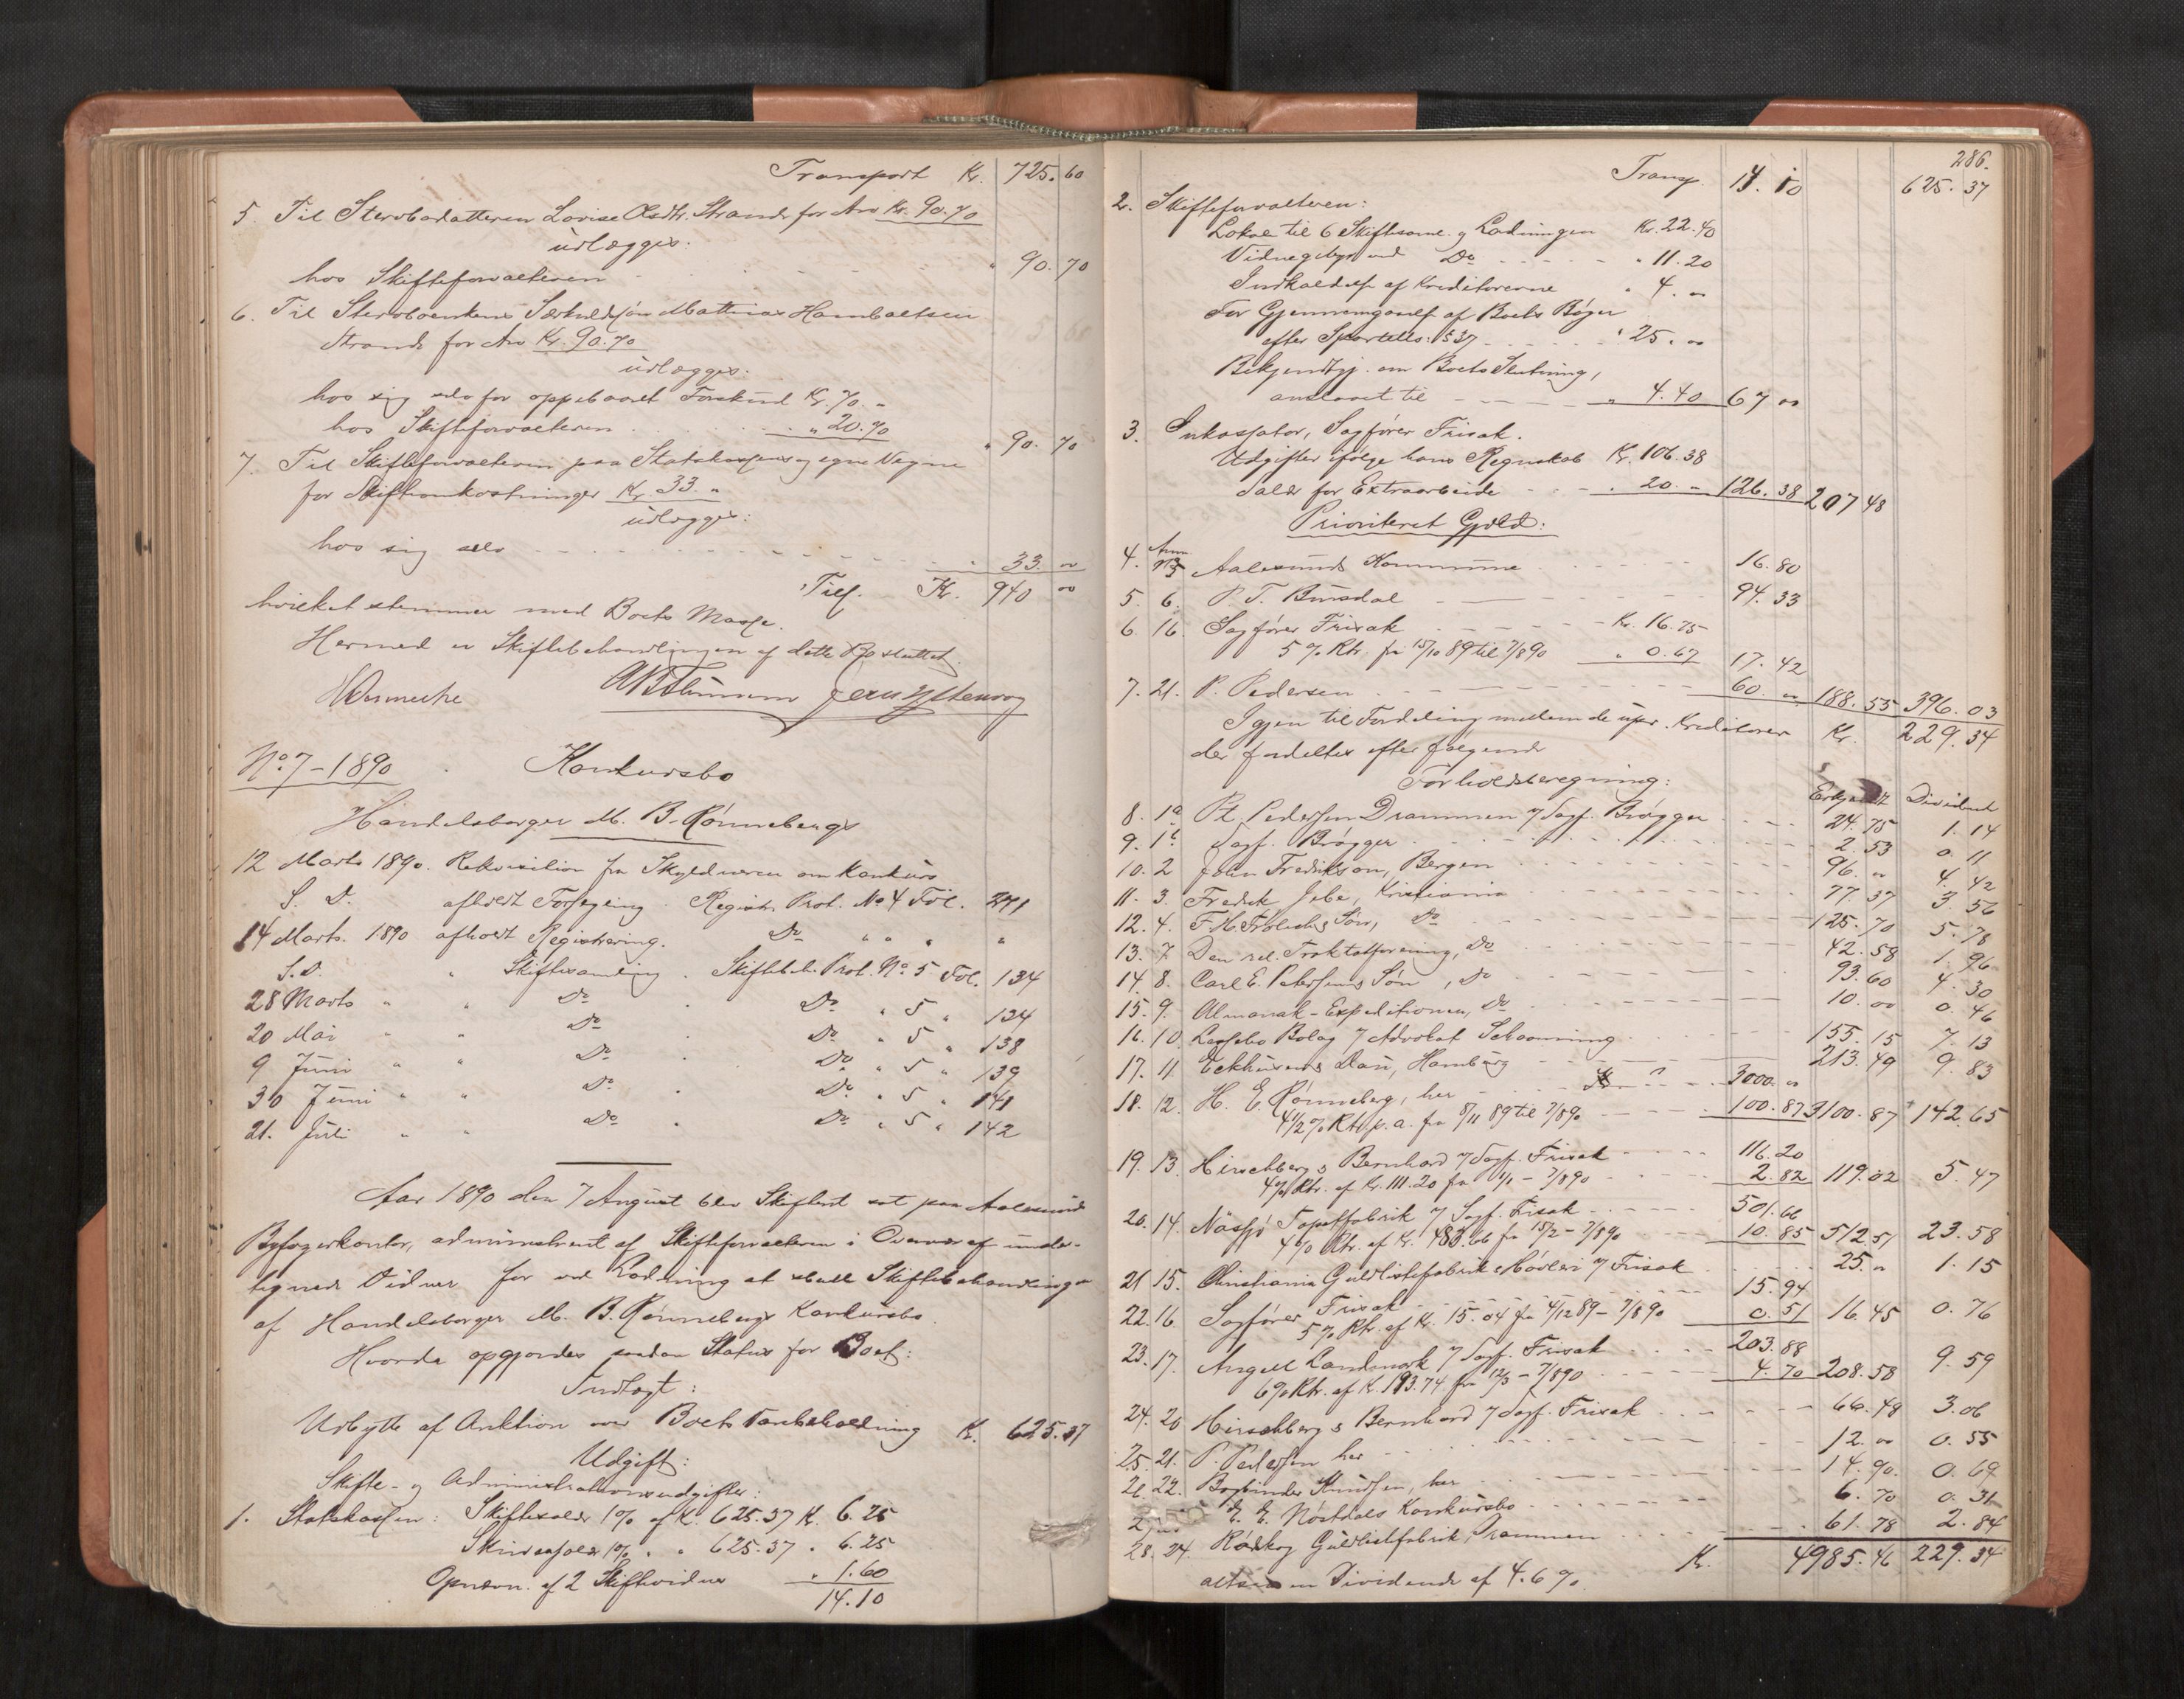 Transport Kr. 725.60
5. Til Sterbodatteren Lovise Olsdtr. Strand for Arv Kr. 90.70
udlægges:
hos Skifteforvalteren " 90.70
6. Til Sterboenkens Særkuldsøn Mathias Hambaltsen
Strand for Arv Kr. 90.70
udlægges:
hos sig selv for oppebaaret Forskud Kr. 70. "
hos Skifteforvalteren " 20.70 " 90.70
7. Til Skifteforvalteren paa Statskassens og egne Vegne
for Skifteomkostninger Kr. 33 "
udlægges:
hos sig selv 33. "
Tils. Kr. 940 "
hvilket stemmer med Boets Masse.
Hermed er Skiftebehandlingen af dette Bo sluttet.
No 7 - 1890 Konkursbo
Handelsborger M. B. Rønnebergs
12 Marts 1890. Rekvisition fra Skyldneren om Konkurs
S. D. afholdt Forsegling. Registr. Prot. No 4 Fol. 271
14 Marts. 1890 afholdt Registrering. Do " " " "
S. D. " Skiftesamling. Skifteb.h. Prot. No 5 Fol. 134
28 Marts " " Do Do " 5 " 134
20 Mai " " Do Do " 5 " 138
9 Juni " " Do Do " 5 " 139
30 Juni " " Do Do " 5 " 141
21. Juli " " Do Do " 5 " 142
Aar 1890 den 7 August blev Skifteret sat paa Aalesunds
Byfogedkontor, administreret af Skifteforvalteren i Overvær af under-
tegnede Vidner for ved Lodning at slutte Skiftebehandlingen
af Handelsborger M. B. Rønnebergs Konkursbo.
Hvorda opgjordes saadan Status for Boet:
Indtægt:
Udbytte af Auktion over Boets Varebeholdning Kr. 625.37
Udgift:
Skifte- og Administrationsudgifter:
1. Statskassen: Skiftesalær 1% af Kr. 625.37 Kr. 6.25
1% " " 625.37 " 6.25
Opnævn. af 2 Skiftevidner " 1.60
14.10
286.
Transp. 14.10 625.37
2. Skifteforvalteren:
Lokale til 6 Skiftesaml. og Lodningen Kr. 22.40
Vidnegebyr ved Do " 11.20
Indkaldelse af Kreditorerne " 4. "
For Gjennemgaaelse af Boets Bøger
efter Sportells: § 37 " 25. "
Bekjendtgj. om Boets Slutning,
anslaaet til " 4.40 67 "
3. Inkassator, Sagfører Frisak.
Udgifter ifølge hans Regnskab Kr. 106.38
Salær for Extraarbeide " 20. " 126.38 207 48
Prioriteret Gjæld:
4. Anm No 5 Aalesunds Kommune 16.80
5. 6. P. T. Buusdal 94.33
6. 16. Sagfører Frisak Kr. 16.75
5% Rtr. fra 15/10 89 til 7/8 90 " 0.67 17.42
7. 21. P. Pedersen 60. " 188.55 396.03
Igjen til Fordeling mellem de upr. Kreditorer Kr. 229.34
der fordeltes efter følgende
Forholdsberegning:
Erkjendt Dividende
8. 1a Pt. Pedersen Drammen v/ Sagf. Brøgger 24.75 1.14
9. 1b Sagf. Brøgger 2.53 0.11
10. 2 John Fredrikson, Bergen 96. " 4.42
11. 3. Fredrik Jebe, Kristiania 77.37 3.56
12. 4. F. H. Frølichs Søn, Do 125.70 5.78
13. 7 Den rel. Traktatforening, Do 42.58 1.96
14. 8. Carl E. Petersens Søn, Do 93.60 4.30
15. 9. Almanak-Expeditionen, Do 10.00 0.46
16. 10 Lessebo Bolag v/ Advokat Schaanning 155.15 7.13
17. 11 Eckhusens Dau, Hamburg 213.49 9.83
18. 12. H. E. Rønneberg, her 3000. "
4 1/2% Rtr. p. a. fra 8/11 89 til 7/8 90 100.87 3100.87 142.65
19. 13. Hirschberg & Bernhard v/ Sagf. Frisak 116.20
4% Rtr. af Kr. 111.20 fra 1/1 - 7/8 90 2.82 119.02 5.47
20. 14. Nässjö Tapetfabrik v/ Sagf. Frisak 501.66
4% Rtr. af Kr. 480.66 fra 15/2 - 7/8 90 10.85 512.51 23.58
21 15. Christiania Guldlistefabrik v/ Frisak 25. " 1.15
22. 16. Sagfører Frisak 15.94
5% Rtr. af Kr. 15.04 fra 4/12 89 - 7/8 90 0.51 16.45 0.76
23. 17. Angell Landmark v/ Sagf. Frisak 203.88
6% Rtr. af Kr. 193.74 fra 12/3 - 7/8 90 4.70 208.58 9.59
24. 20 Hirschberg & Bernhard v/ Sagf. Frisak 66.48 3.06
25. 21. P. Pedersen her 12. " 0.55
26. 22. Bogbinder Knudsen, her 14.90. 0.69
E. E. Nørdals Konkursbo 6.70 0.31
28. 24. Guldlistfabrik, Drammen 61.78 2.84
Kr. 4985.46 229.34
altsaa en Dividende af 4.6%.